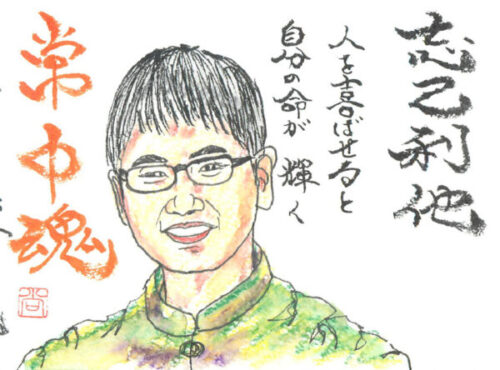 忘己利他
人を喜ばせると
自分の命が 輝く
常中魂